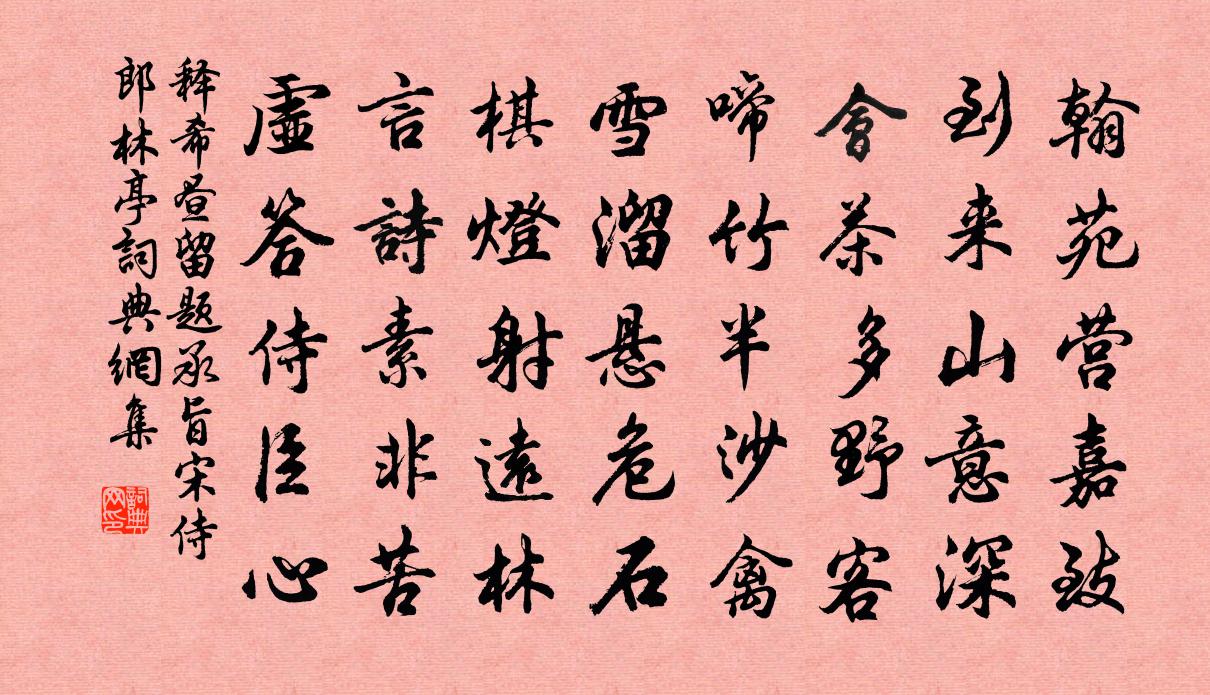 翰苑营嘉致
到来山意深
會茶多野客
啼竹半沙禽
雪溜悬危石
棋燈射遠林
言詩素非苦
虛答侍臣心
释希昼留题承旨宋侍
郎林亭詞典網集
詞典
网印